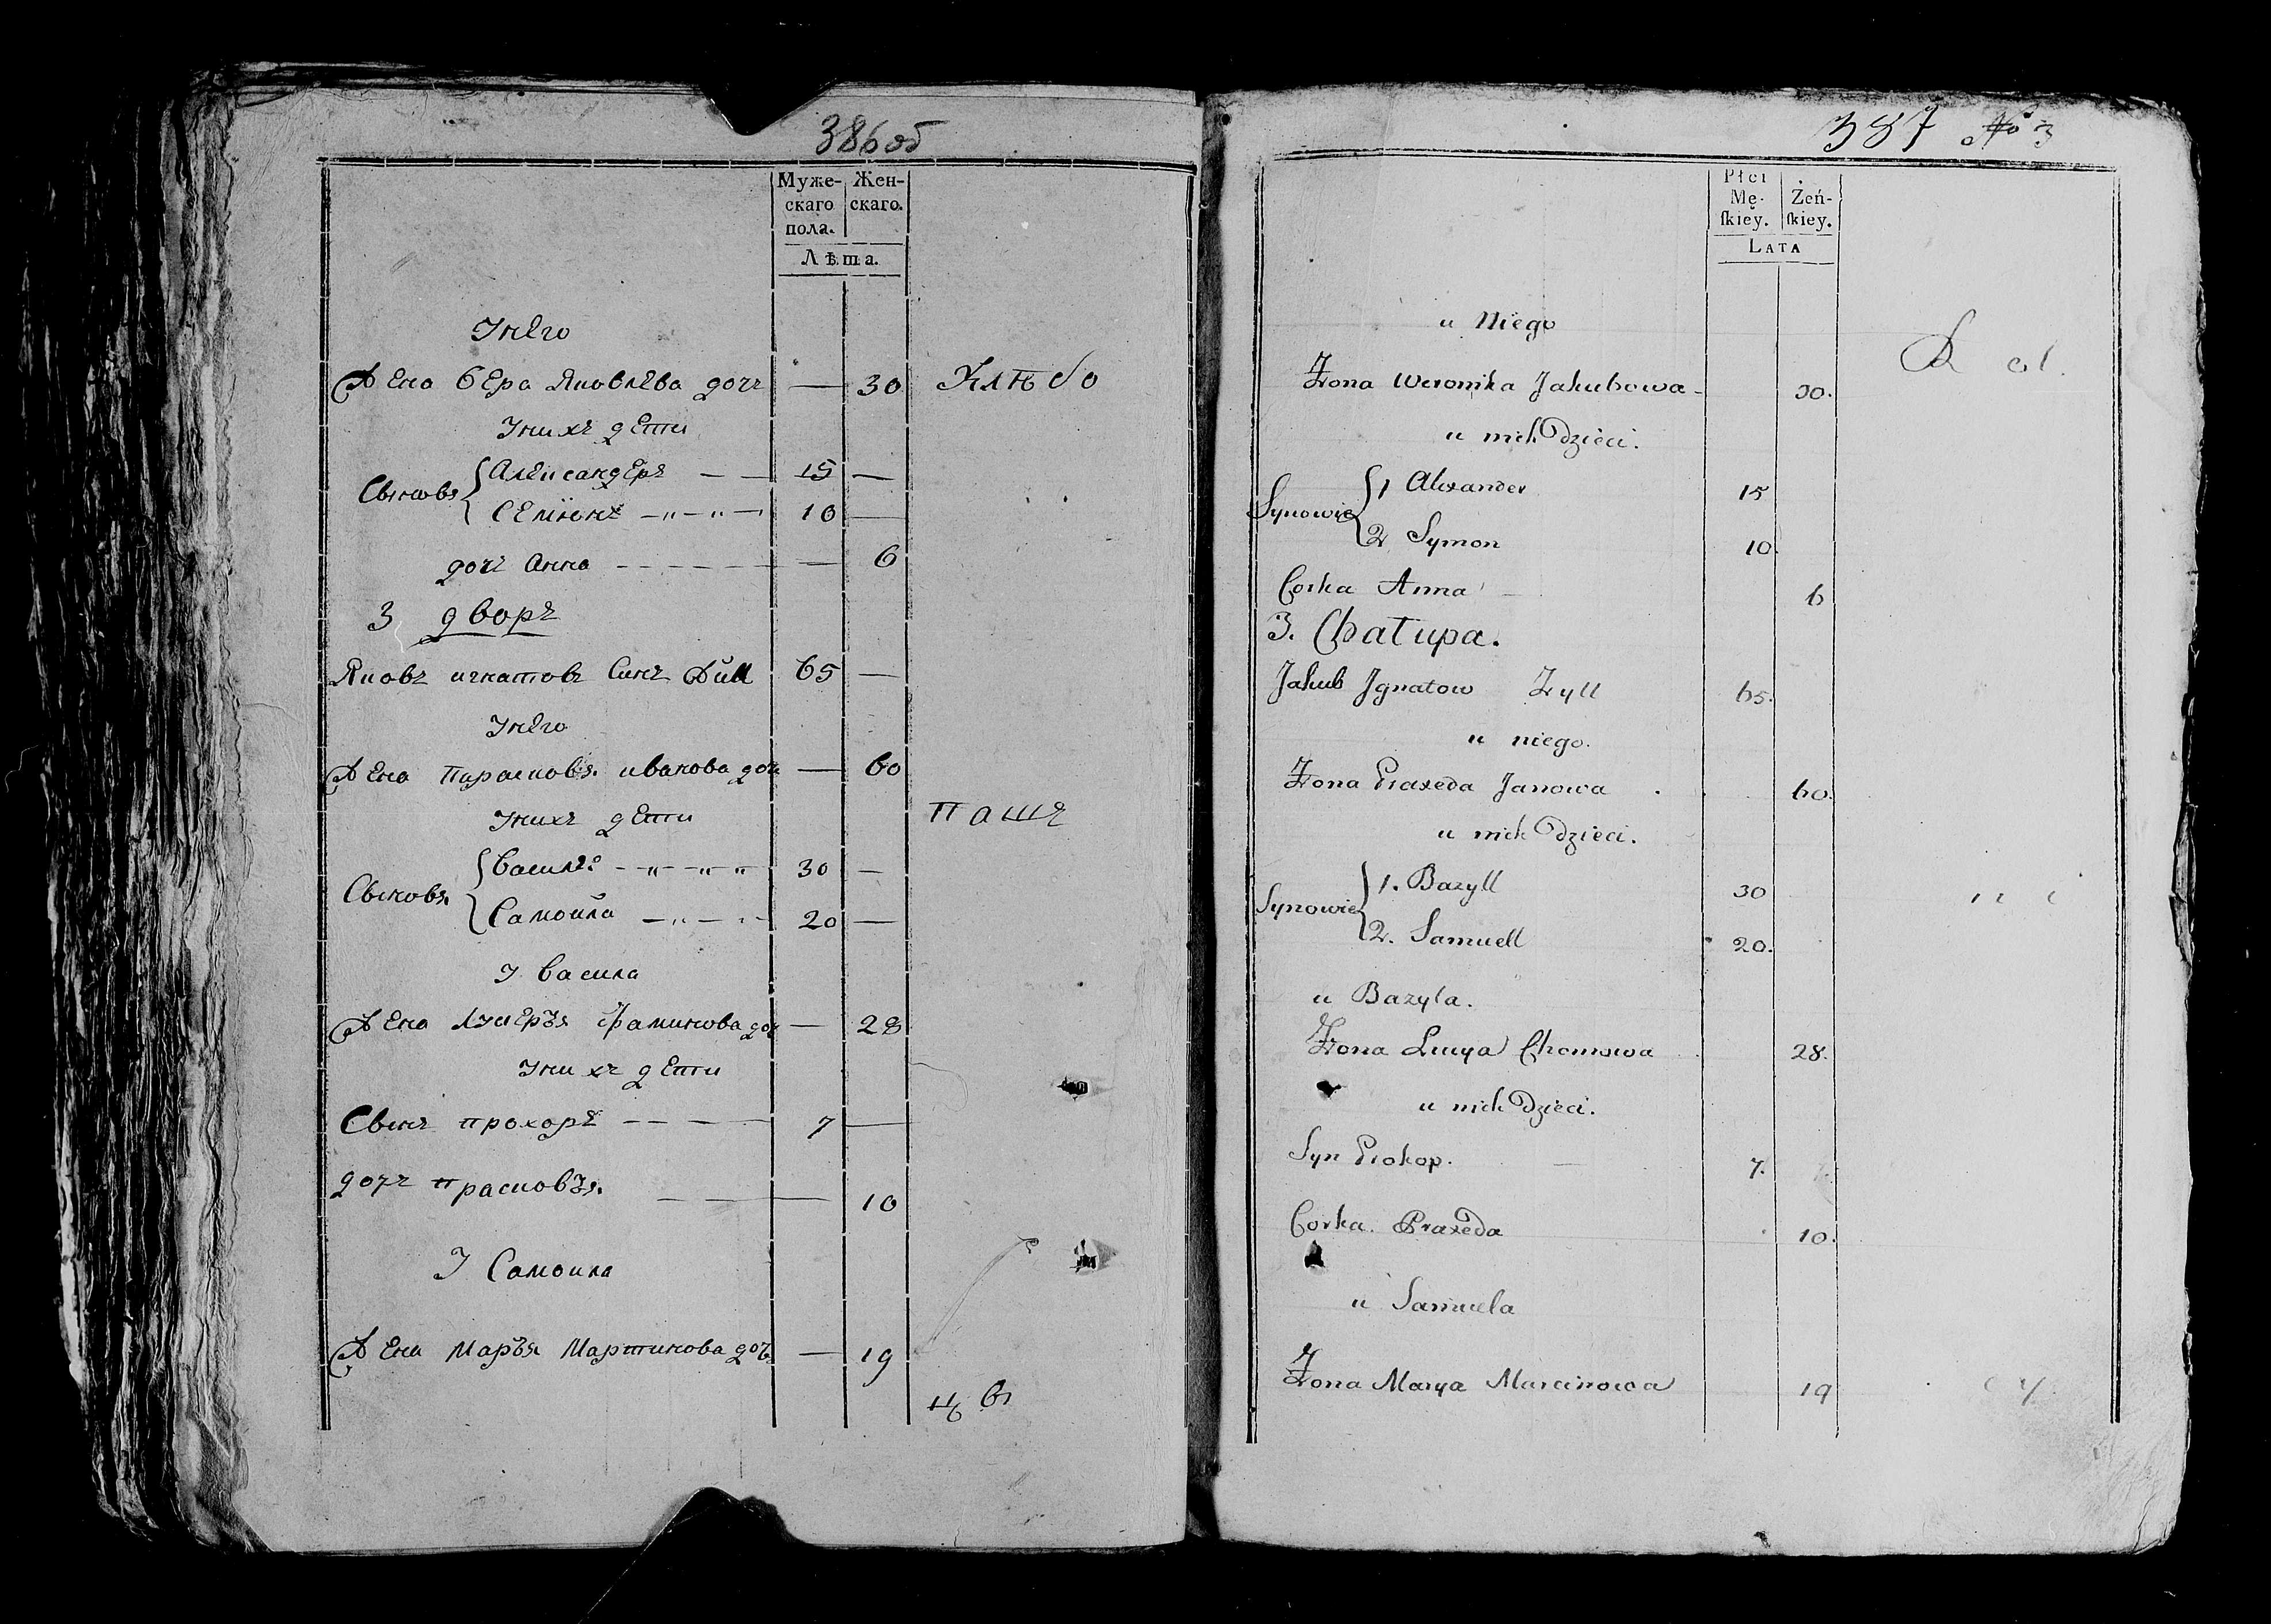 386об
Муже- Жен-
скаго скаго.
пола.
Лѣта.
Унего
Жена Вера Яковлева доч 30
Унихъ дети
Сынове Александеръ 15
Семионъ 10
доч Анна 6
3 дворъ
Яковъ игнатовъ Синъ Жилл 65
Унего
Жена Парасковя ивакова доч 60
Унихъ дети
пашъ
Сынове Василе 30
Самоила 20
У Васила
Жена Фаминова доч 28
Унихъ дети
Сынъ прохоръ 7
доч прасковъя 10
У Самоила
Жена Маръя Мартинова доч 19
387 No 3
Płci
Mę- Żeń-
skiey. skiey.
LATA
u Niego
Żona Weronika Jakubowa 30.
u nich Dzieci.
Synowie 1 Alexander 15
2 Symon 10.
Corka Anna 6
3. Chałupa.
Jakub Jgnatow Żyll 65.
u niego.
Żona Praxeda Janowa 60.
u nich Dzieci.
Synowie 1. Bazyll 30
2. Samuell 20.
u Bazyla.
Żona Lucya Chomowa 28.
u nich Dzieci.
Syn Prokop. 7.
Corka Praxeda 10.
u Samuela
Żona Marya Marcinowa 19